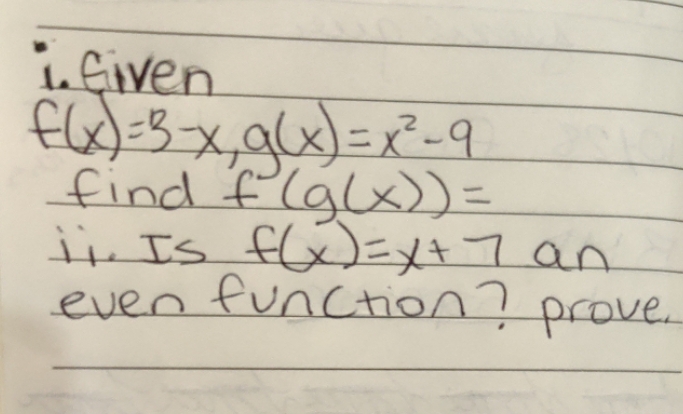 i. Given
f(x)=3-x, g(x)=x²-9
find f(g(x))=
ii. Is f(x)=x+7 an
even function? prove.